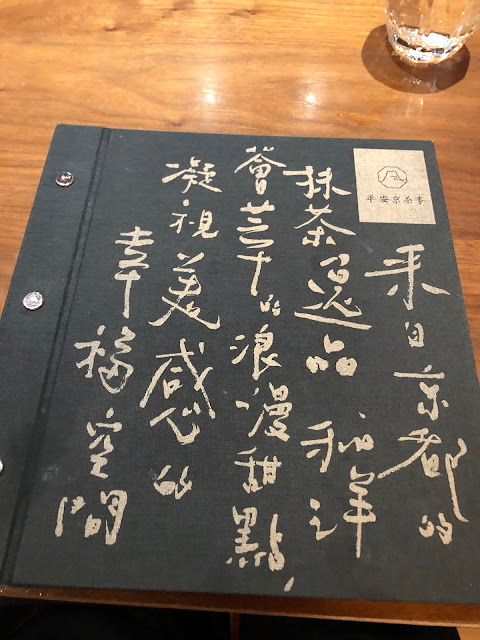 平安京茶事
來自京都的
抹茶逸品 和洋
薈萃的浪漫甜點,
凝視美感的
幸福空間